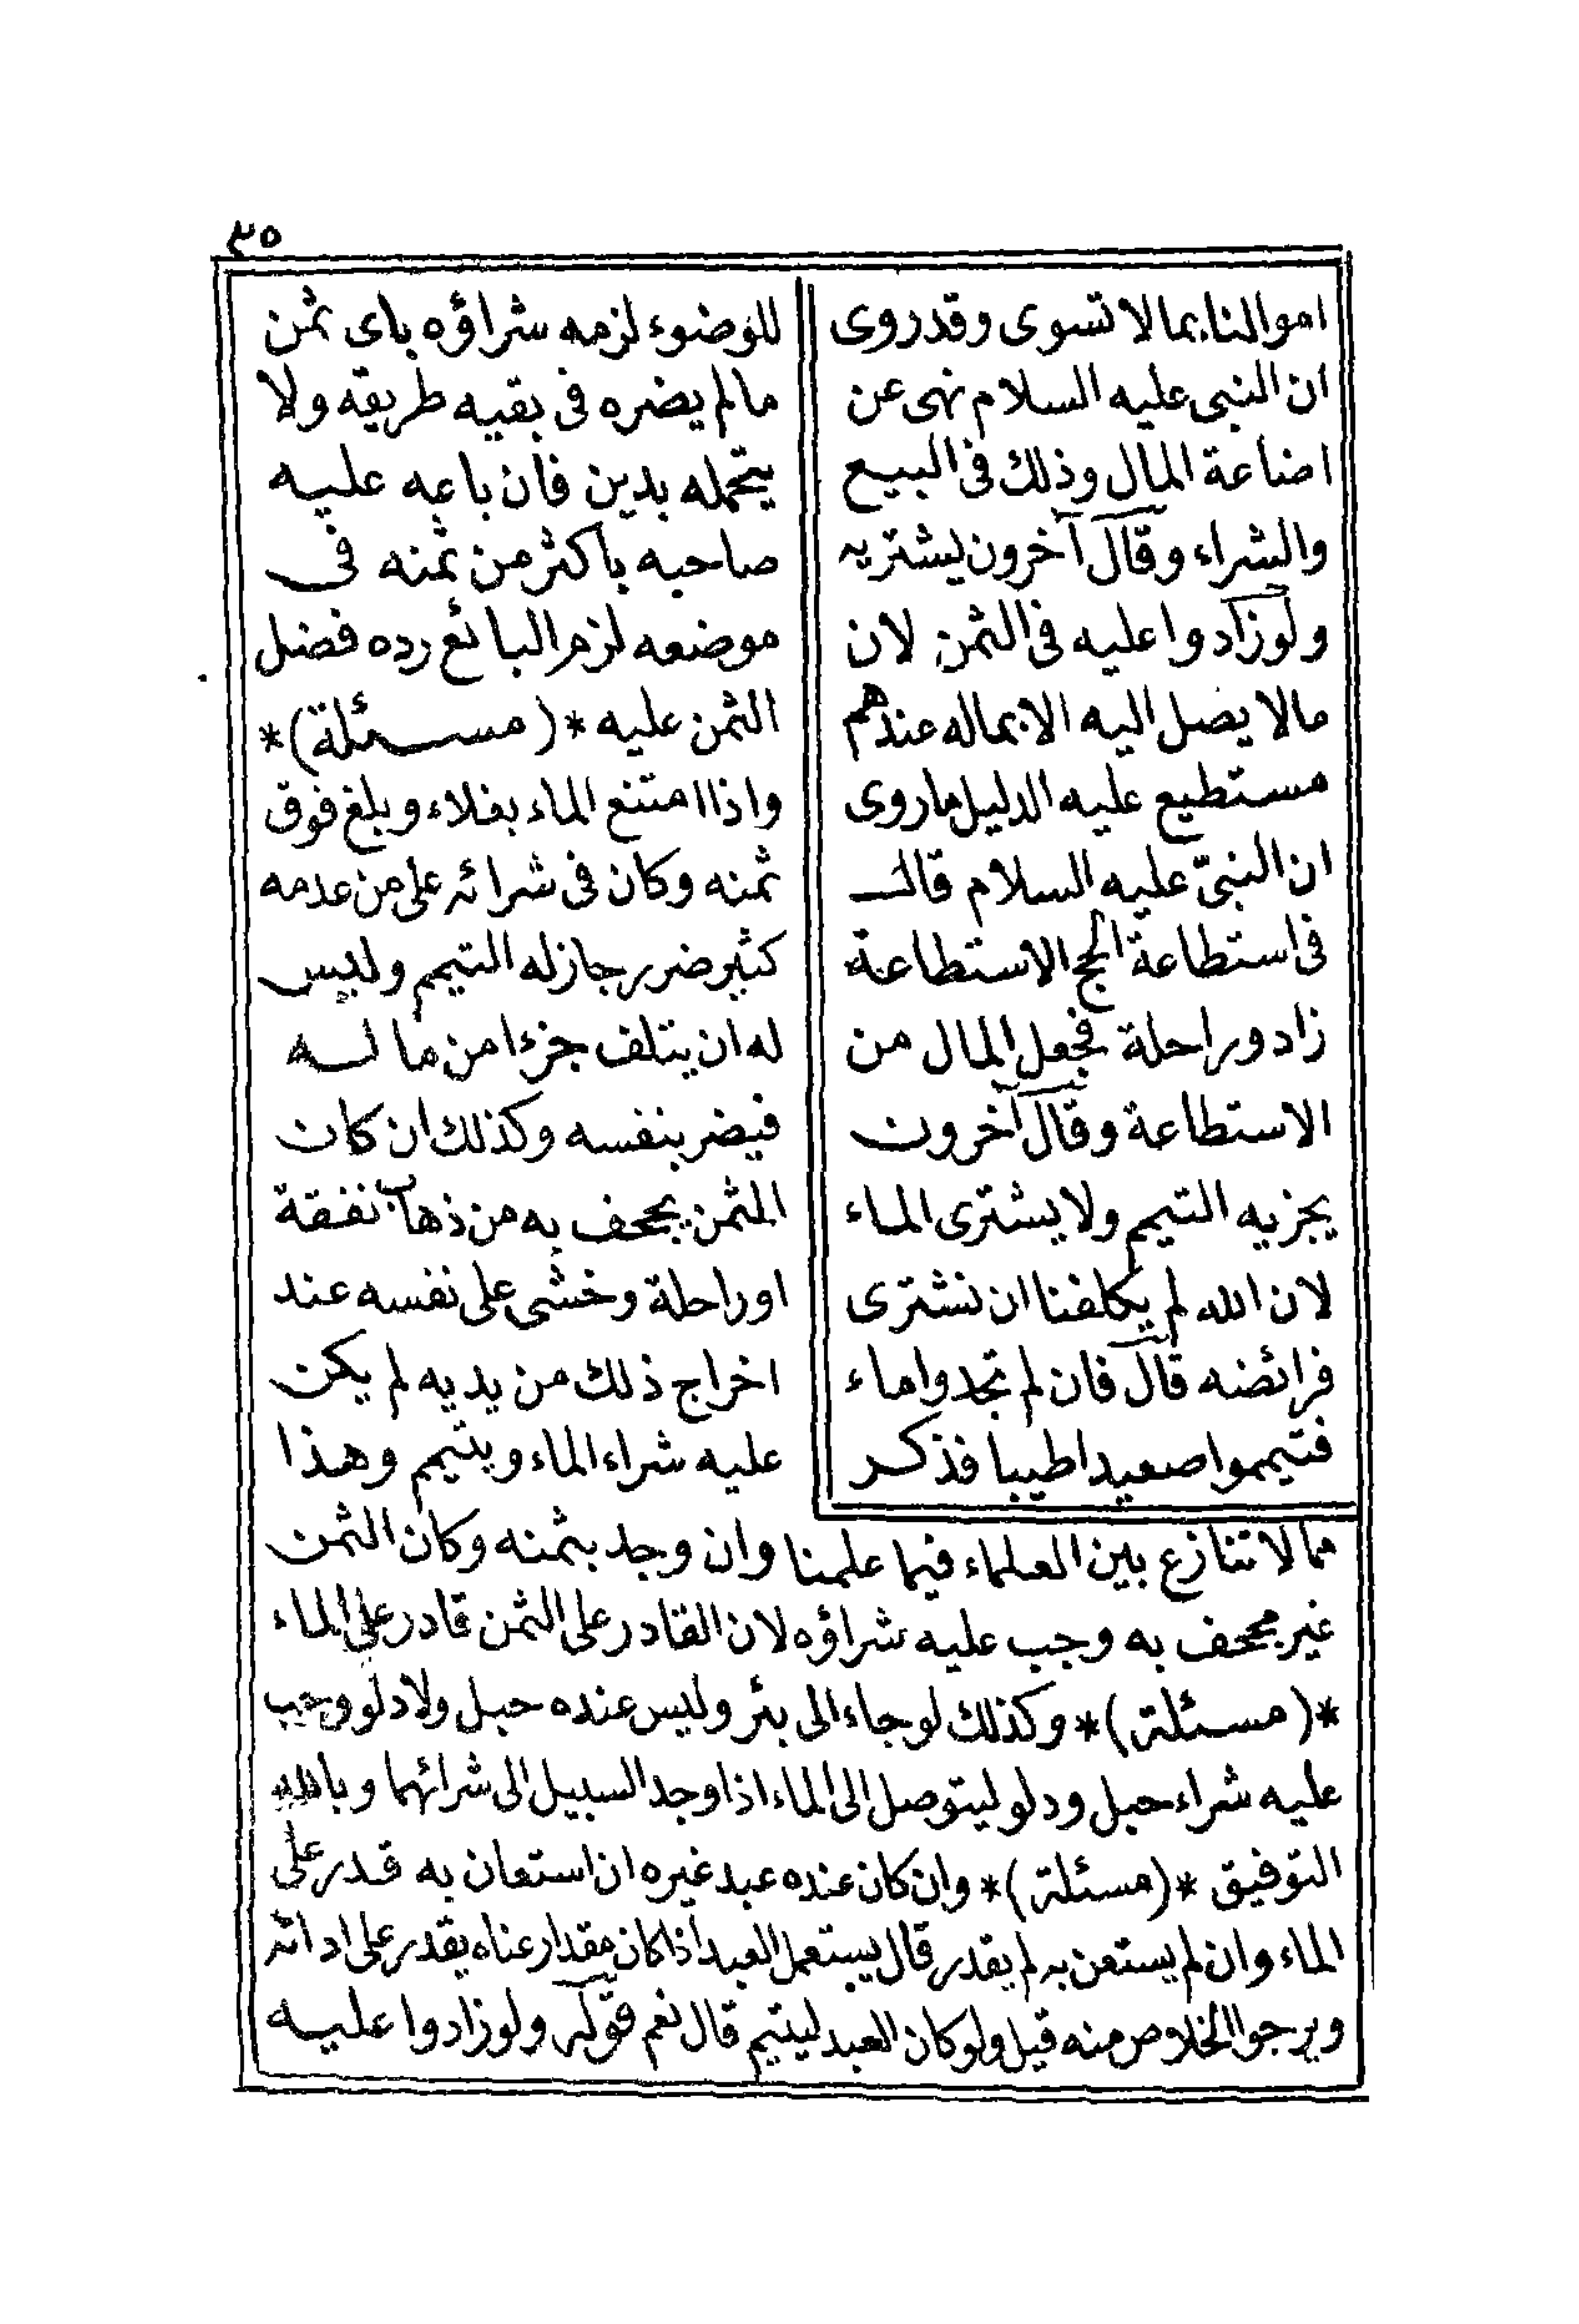 ٣٥
اموالنا بما لا تسوى وقد روى
ان النبى عليه السلام نهى عن
اضاعة المال وذلك فى البيع
والشراء وقال آخرون يشتريه
ولو زادوا عليه فى الثمن لان
مالا يصل اليه الا بماله عندهم
مستطيع عليه الدليل ما روى
ان النبىّ عليه السلام قال
فى استطاعة الحج الاستطاعة
زاد وراحلة فجعل المال من
الاستطاعة وقال آخرون
يجزيه التيمم ولا يشترى الماء
لان الله لم يكلفنا ان نشترى
فرائضه قال فان لم تجدوا ماء
فتيمموا صعيدا طيبا فذكر
للوضوء لزمه شراؤه باى ثمن
مالم يضره فى بقيه طريقه ولا
يتحمله بدين فان باعه عليه
صاحبه باكثر من ثمنه فى
موضعه لزم البائع رده فضل
الثمن عليه *(مسئلة)*
واذا امتنع الماء بغلاء وبلغ فوق
ثمنه وكان فى شرائه على من عدمه
كثير ضرر جاز له التيمم وليس
له ان يتلف جزءا من ماله
فيضر بنفسه وكذلك ان كان
المثمن يجحف به من ذهاب نفقة
او راحلة وخشى على نفسه عند
اخراج ذلك من يديه لم يكن
عليه شراء الماء ويتيمم وهذا
مما لا تنازع بين العلماء فيما علمنا وان وجد بثمنه وكان الثمن
غير مجحف به وجب عليه شراؤه لان القادر على الثمن قادر على الماء
*(مسئلة)* وكذلك لو جاء الى بئر وليس عنده حبل ولا دلو وجب
عليه شراء حبل ودلو ليتوصل الى الماء اذا وجد السبيل الى شرائهما وبالله
التوفيق *(مسئلة)* وان كان عنده عبد غيره ان استعان به قدر على
الماء وان لم يستعن به لم يقدر قال يستعمل العبد اذا كان مقدار عناه يقدر على ادائه
ويرجوا الخلاص منه قيل ولو كان العبد ليتيم قال نعم قوله ولو زادوا عليه